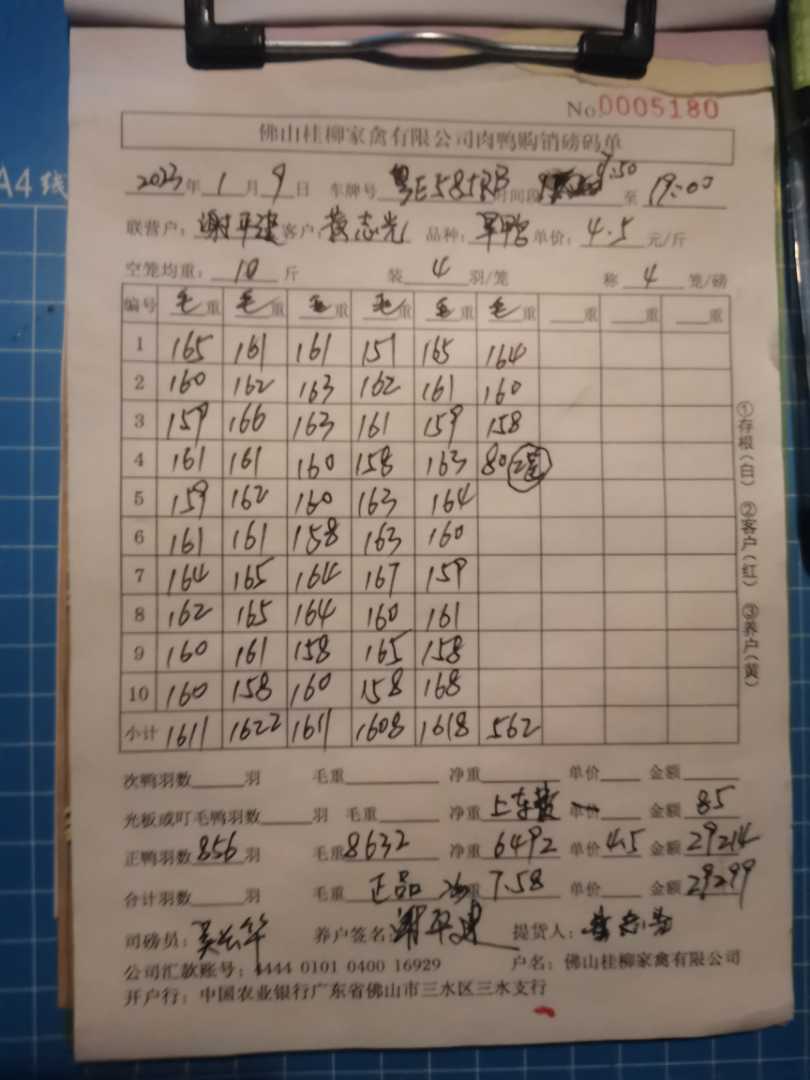 A4
No.0005180
佛山桂柳家禽有限公司肉鸭购销磅码单
2023年1月9日 车牌号 粤E585RB 时间段 9:50 至 19:00
联营户: 谢平建 客户: 黄志光 品种: 旱鸭 单价: 4.5 元/斤
空笼均重: 10 斤 装 4 羽/笼 称 4 笼/磅
编号 毛重 毛重 毛重 毛重 毛重 毛重 重 重 重
1 165 161 161 151 165 164
2 160 162 163 162 161 160
3 159 166 163 161 159 158
4 161 161 160 158 163 80 2笼
5 159 162 160 163 164
6 161 161 158 163 160
7 164 165 164 167 159
8 162 165 164 160 161
9 160 161 158 165 158
10 160 158 160 158 168
小计 1611 1622 1611 1608 1618 562
①存根(白) ②客户(红) ③养户(黄)
次鸭羽数 羽 毛重 净重 单价 金额
光板或叮毛鸭羽数 羽 毛重 净重 上车费 单价 金额 85
正鸭羽数 856 羽 毛重 8632 净重 6492 单价 4.5 金额 29214
合计羽数 羽 毛重 正品 重 7.58 单价 金额 29299
司磅员: 养户签名: 谢平建 提货人: 黄志光
公司汇款账号: 4444 0101 0400 16929 户名: 佛山桂柳家禽有限公司
开户行: 中国农业银行广东省佛山市三水区三水支行